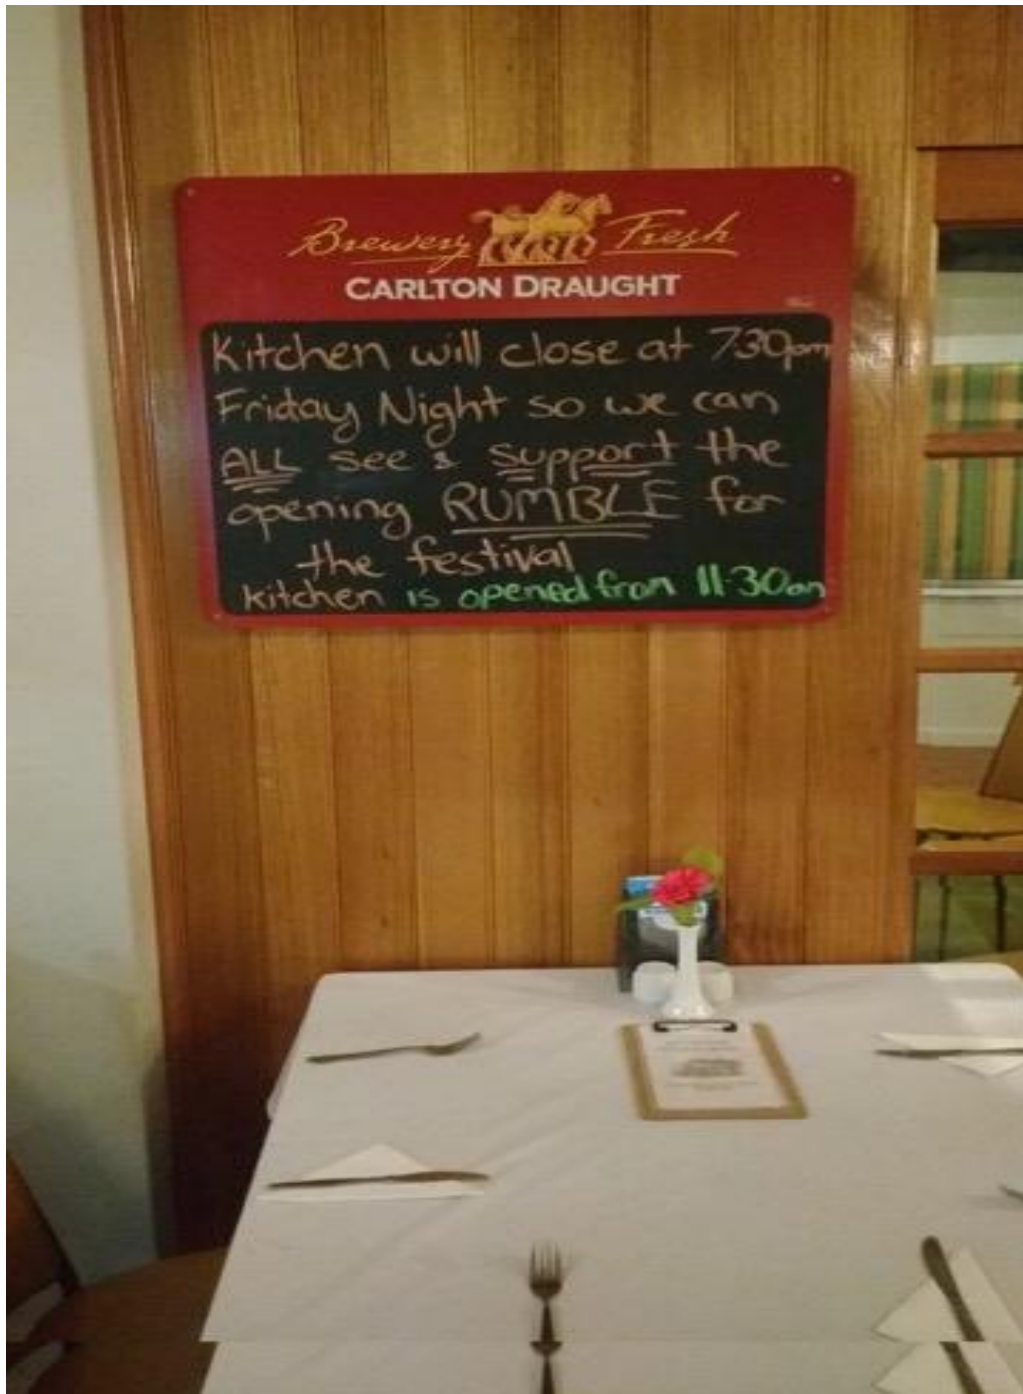 Brewery Fresh
CARLTON DRAUGHT
Kitchen will close at 7.30pm
Friday Night so we can
ALL see & support the
opening RUMBLE for
the festival
kitchen is opened from 11.30am